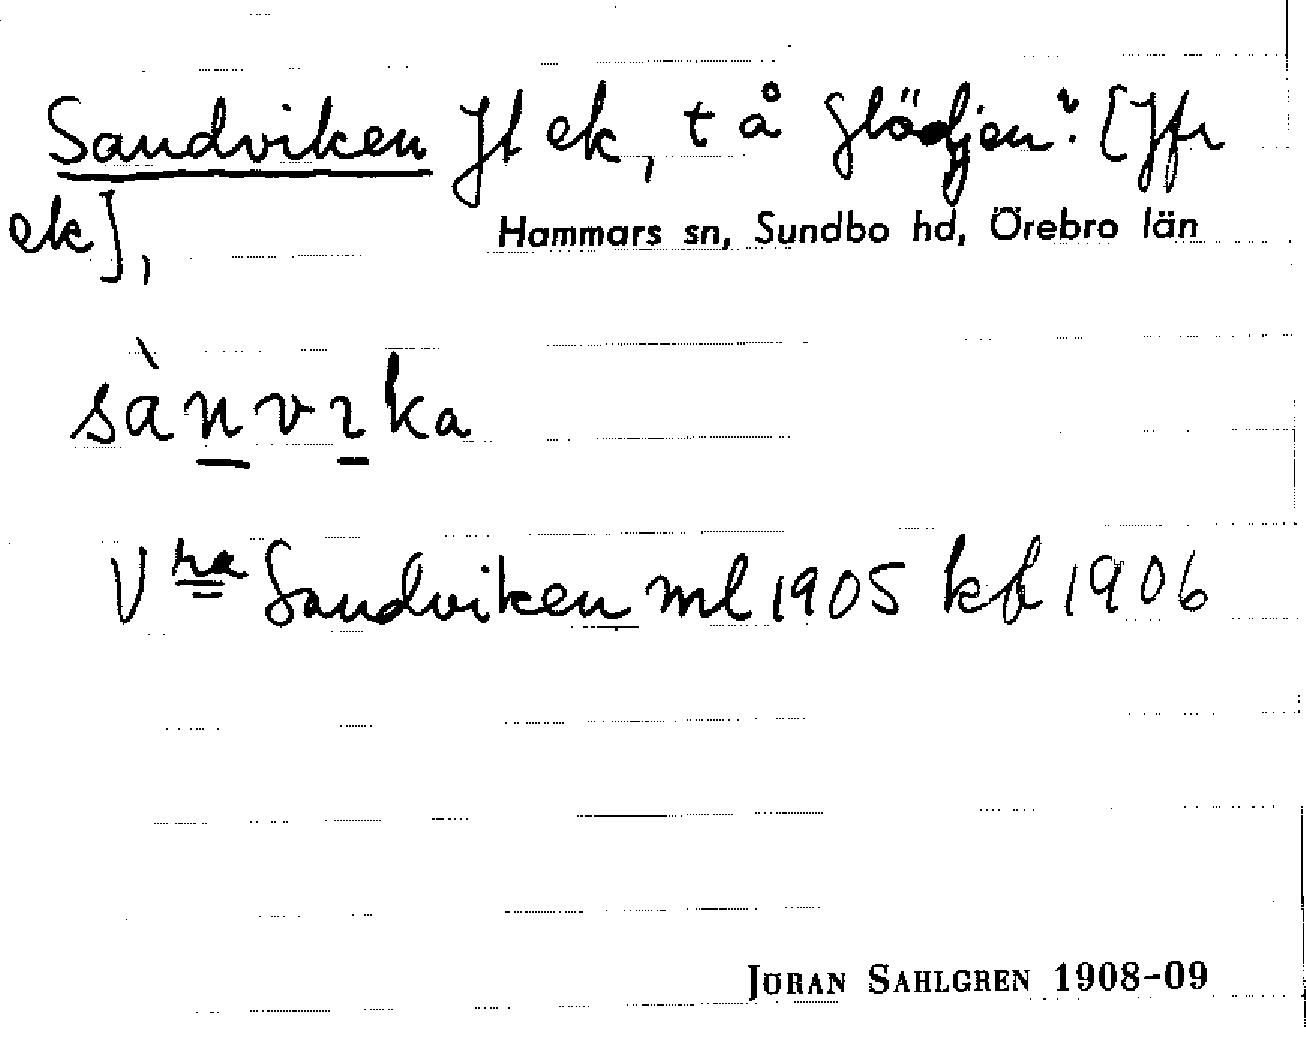 Sandviken Jl ek, t å Glädjen². [Jfr
ek],
Hammars sn, Sundbo hd, Örebro län
sànvıka
V ra Sandviken ml 1905 kb 1906
JÖRAN SAHLGREN 1908-09